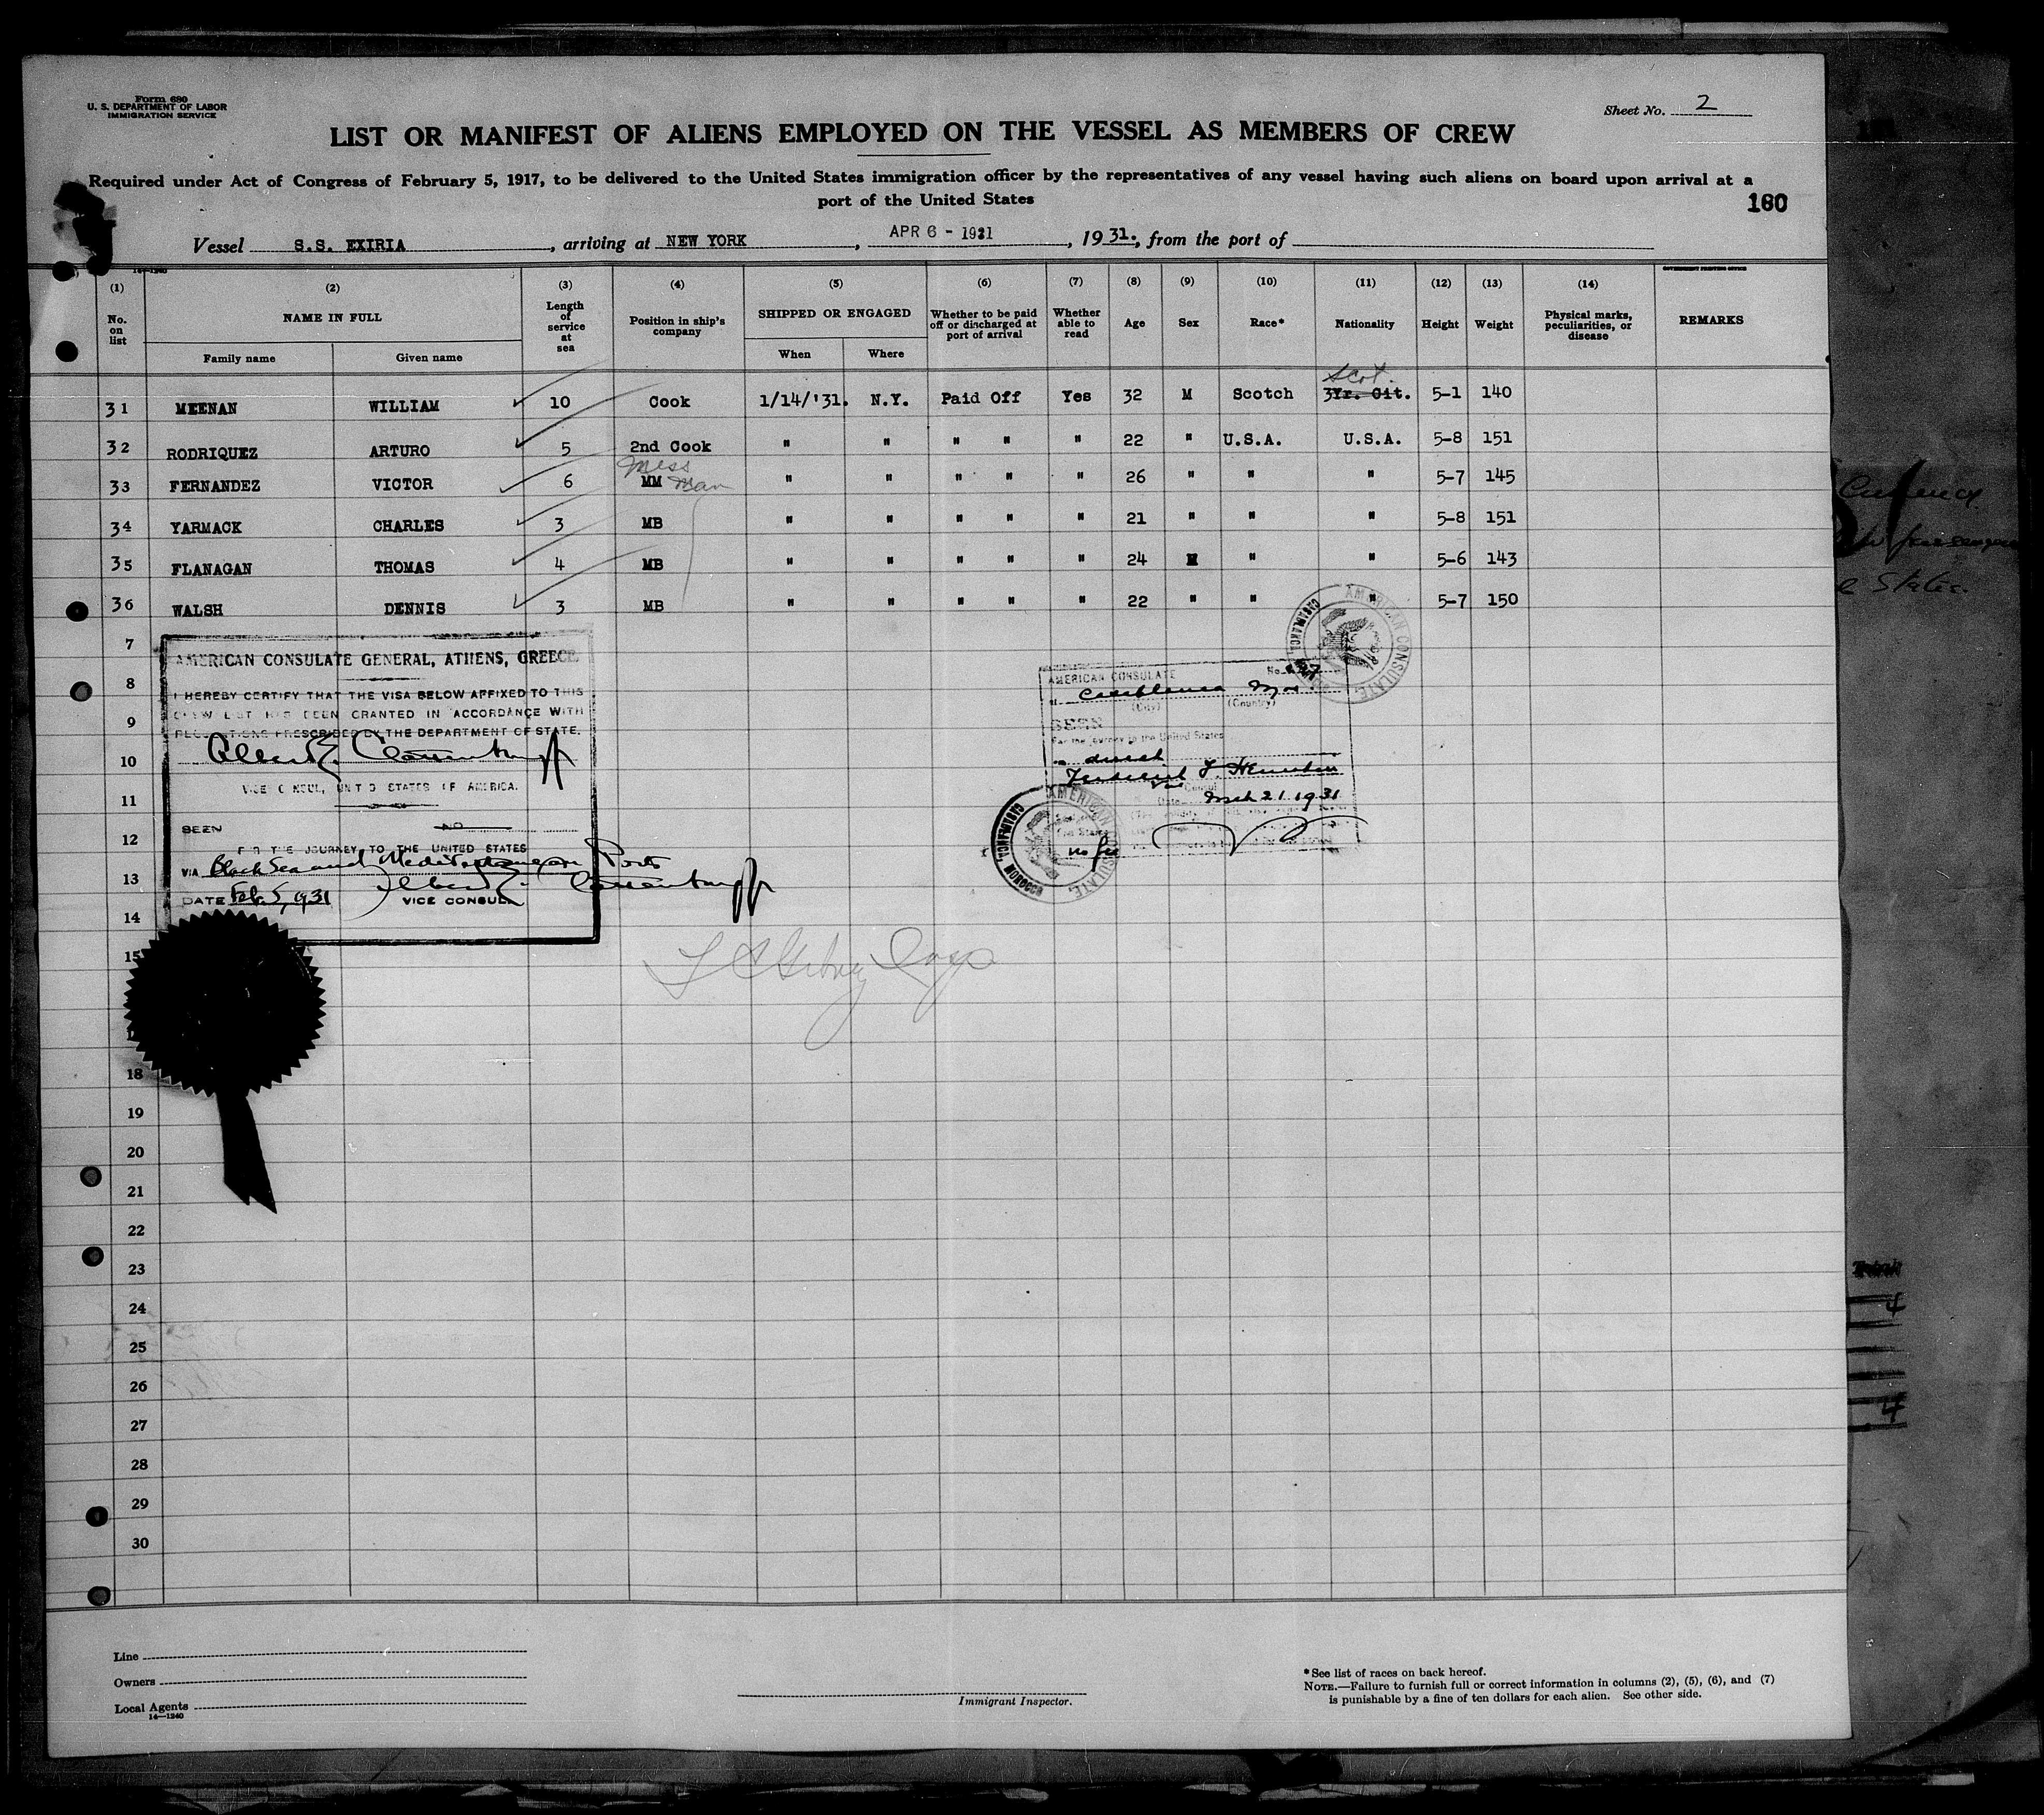 Form 680
U. S. DEPARTMENT OF LABOR
IMMIGRATION SERVICE
Sheet No. 2
LIST OR MANIFEST OF ALIENS EMPLOYED ON THE VESSEL AS MEMBERS OF CREW
Required under Act of Congress of February 5, 1917, to be delivered to the United States immigration officer by the representatives of any vessel having such aliens on board upon arrival at a
port of the United States
160
Vessel S.S. EXIRIA, arriving at NEW YORK, APR 6 - 1931, 1931., from the port of
14-1240
GOVERNMENT PRINTING OFFICE
(1) (2) (3) (4) (5) (6) (7) (8) (9) (10) (11) (12) (13) (14)
No. on list NAME IN FULL Length of service at sea Position in ship's company SHIPPED OR ENGAGED Whether to be paid off or discharged at port of arrival Whether able to read Age Sex Race* Nationality Height Weight Physical marks, peculiarities, or disease REMARKS
Family name Given name When Where
Scot.
31 MEENAN WILLIAM 10 Cook 1/14/'31. N.Y. Paid Off Yes 32 M Scotch 3Yr. Cit. 5-1 140
32 RODRIQUEZ ARTURO 5 2nd Cook " " " " " 22 " U.S.A. U.S.A. 5-8 151
33 FERNANDEZ VICTOR 6 MM Mess man " " " " " 26 " " " 5-7 145
34 YARMACK CHARLES 3 MB " " " " " 21 " " " 5-8 151
35 FLANAGAN THOMAS 4 MB " " " " " 24 M " " 5-6 143
36 WALSH DENNIS 3 MB " " " " " 22 " " " 5-7 150
7
8
9
10
11
12
13
14
15
18
19
20
21
22
23
24
25
26
27
28
29
30
AMERICAN CONSULATE GENERAL, ATHENS, GREECE
I HEREBY CERTIFY THAT THE VISA BELOW AFFIXED TO THIS
CREW LIST HAS BEEN GRANTED IN ACCORDANCE WITH
REGULATIONS PRESCRIBED BY THE DEPARTMENT OF STATE.
VICE CONSUL, UNITED STATES OF AMERICA.
SEEN NO
FOR THE JOURNEY TO THE UNITED STATES
VIA Black Sea and Mediterranean Ports
DATE Feb. 5, 1931 VICE CONSUL
AMERICAN CONSULATE No.
Casablanca Mor.
(City) (Country)
SEEN
For the journey to the United States
direct
Consul
Date March 21. 1931
no fee
AMERICAN CONSULATE,
CASABLANCA, MOROCCO
AMERICAN CONSULATE,
CASABLANCA, MOROCCO
Line
Owners
Local Agents
14-1240
Immigrant Inspector.
*See list of races on back hereof.
NOTE.—Failure to furnish full or correct information in columns (2), (5), (6), and (7)
is punishable by a fine of ten dollars for each alien. See other side.
States.
4
4